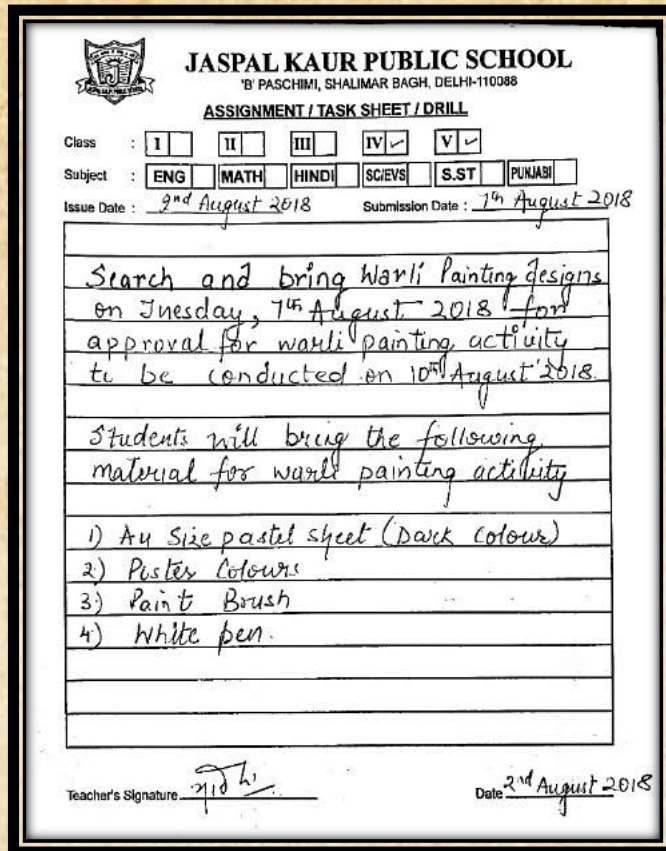 JASPAL KAUR PUBLIC SCHOOL
'B' PASCHIMI, SHALIMAR BAGH, DELHI-110088
ASSIGNMENT / TASK SHEET / DRILL
Class : I II III IV ✓ V ✓
Subject : ENG MATH HINDI SC/EVS S.ST PUNJABI
Issue Date : 2nd August 2018 Submission Date : 7th August 2018
Search and bring Warli Painting designs
on Tuesday, 7th August 2018 for
approval for warli painting activity
to be conducted on 10th August 2018.
Students will bring the following
material for warli painting activity
1) A4 Size pastel sheet (Dark Colour)
2) Poster Colours
3) Paint Brush
4) White pen.
Teacher's Signature Date 2nd August 2018